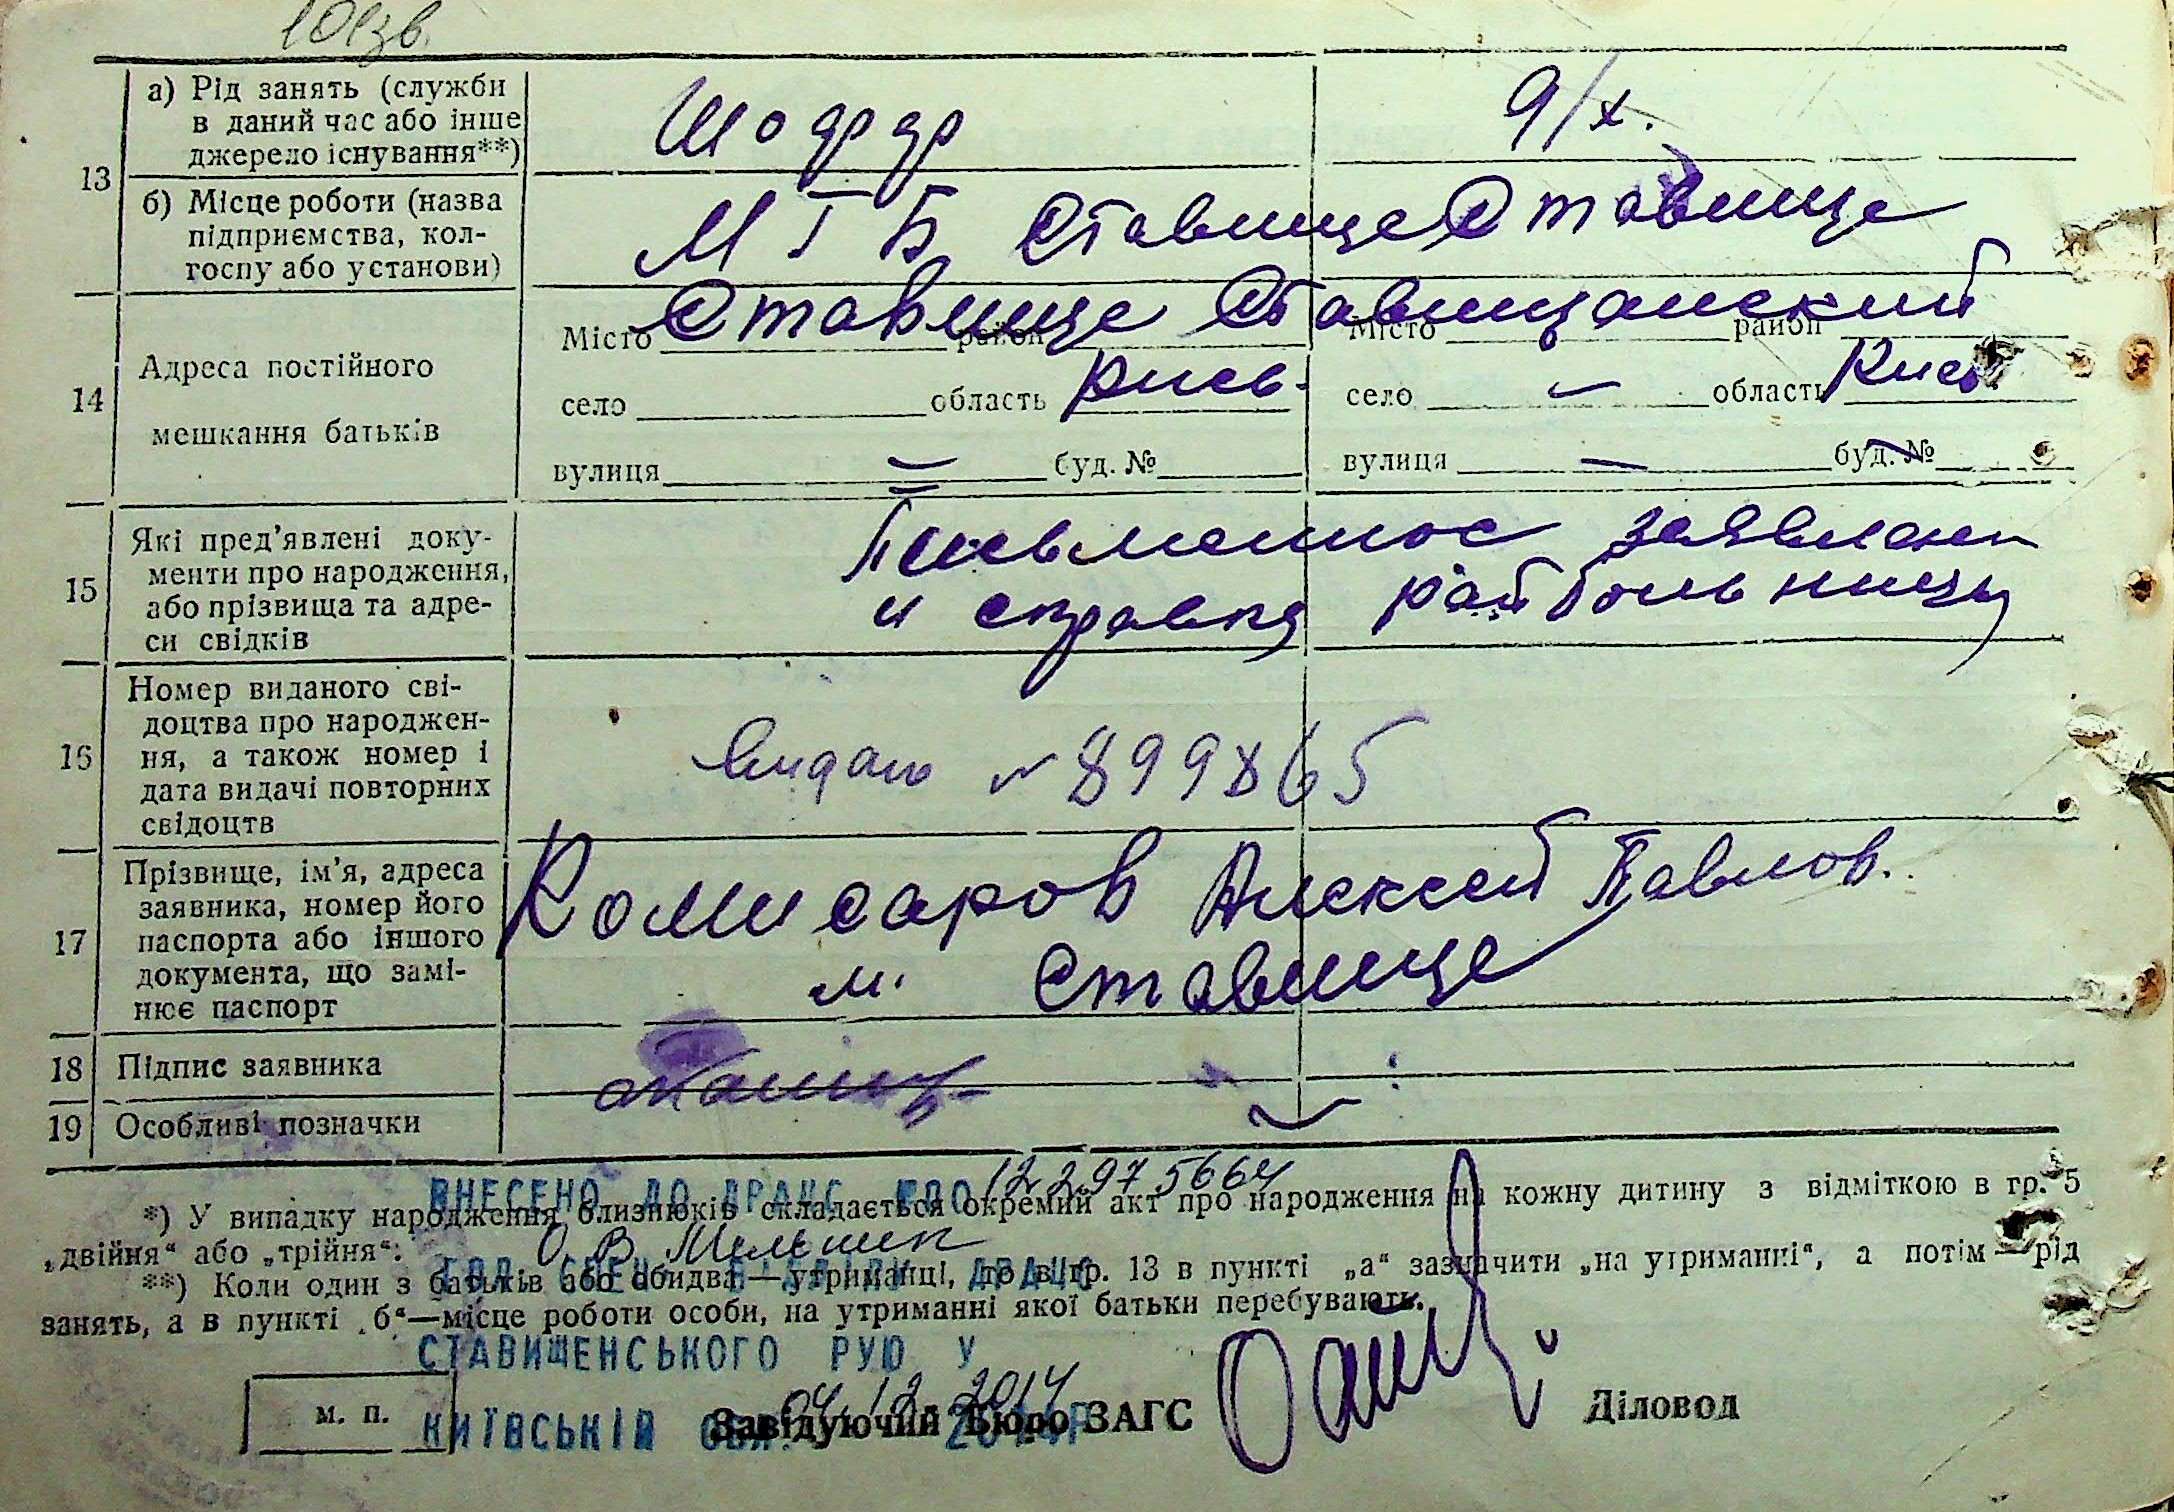 101зв.
13
а) Рід занять (служби в даний час або інше джерело існування**)
Шофер
д/х.
б) Місце роботи (назва підприємства, колгоспу або установи)
МГБ Ставище
Ставище
14
Адреса постійного мешкання батьків
Місто Ставище район
Місто Ставищанский район
село область Киев.
село — область Киев.
вулиця — буд. №
вулиця — буд. №
15
Які пред'явлені документи про народження, або прізвища та адреси свідків
Письменное заявлени
и справка райбольницы
16
Номер виданого свідоцтва про народження, а також номер і дата видачі повторних свідоцтв
Видано № 899865
17
Прізвище, ім'я, адреса заявника, номер його паспорта або іншого документа, що замінює паспорт
Комисаров Алексей Павлов.
м. Ставище
18 Підпис заявника
19 Особливі позначки
ВНЕСЕНО ДО ДРАЦС 12 2975664
*) У випадку народження близнюків складається окремий акт про народження на кожну дитину з відміткою в гр. 5
„двійня“ або „трійня“.
О В Мельник
**) Коли один з батьків або обидва—утриманці, то в гр. 13 в пункті „а“ зазначити „на утриманні“, а потім—рід
занять, а в пункті „б“—місце роботи особи, на утриманні якої батьки перебувають.
СТАВИЩЕНСЬКОГО РУЮ У
04.12.2014
КИЇВСЬКІЙ ОБЛ.
м. п.
Завідуючий Бюро ЗАГС
Діловод